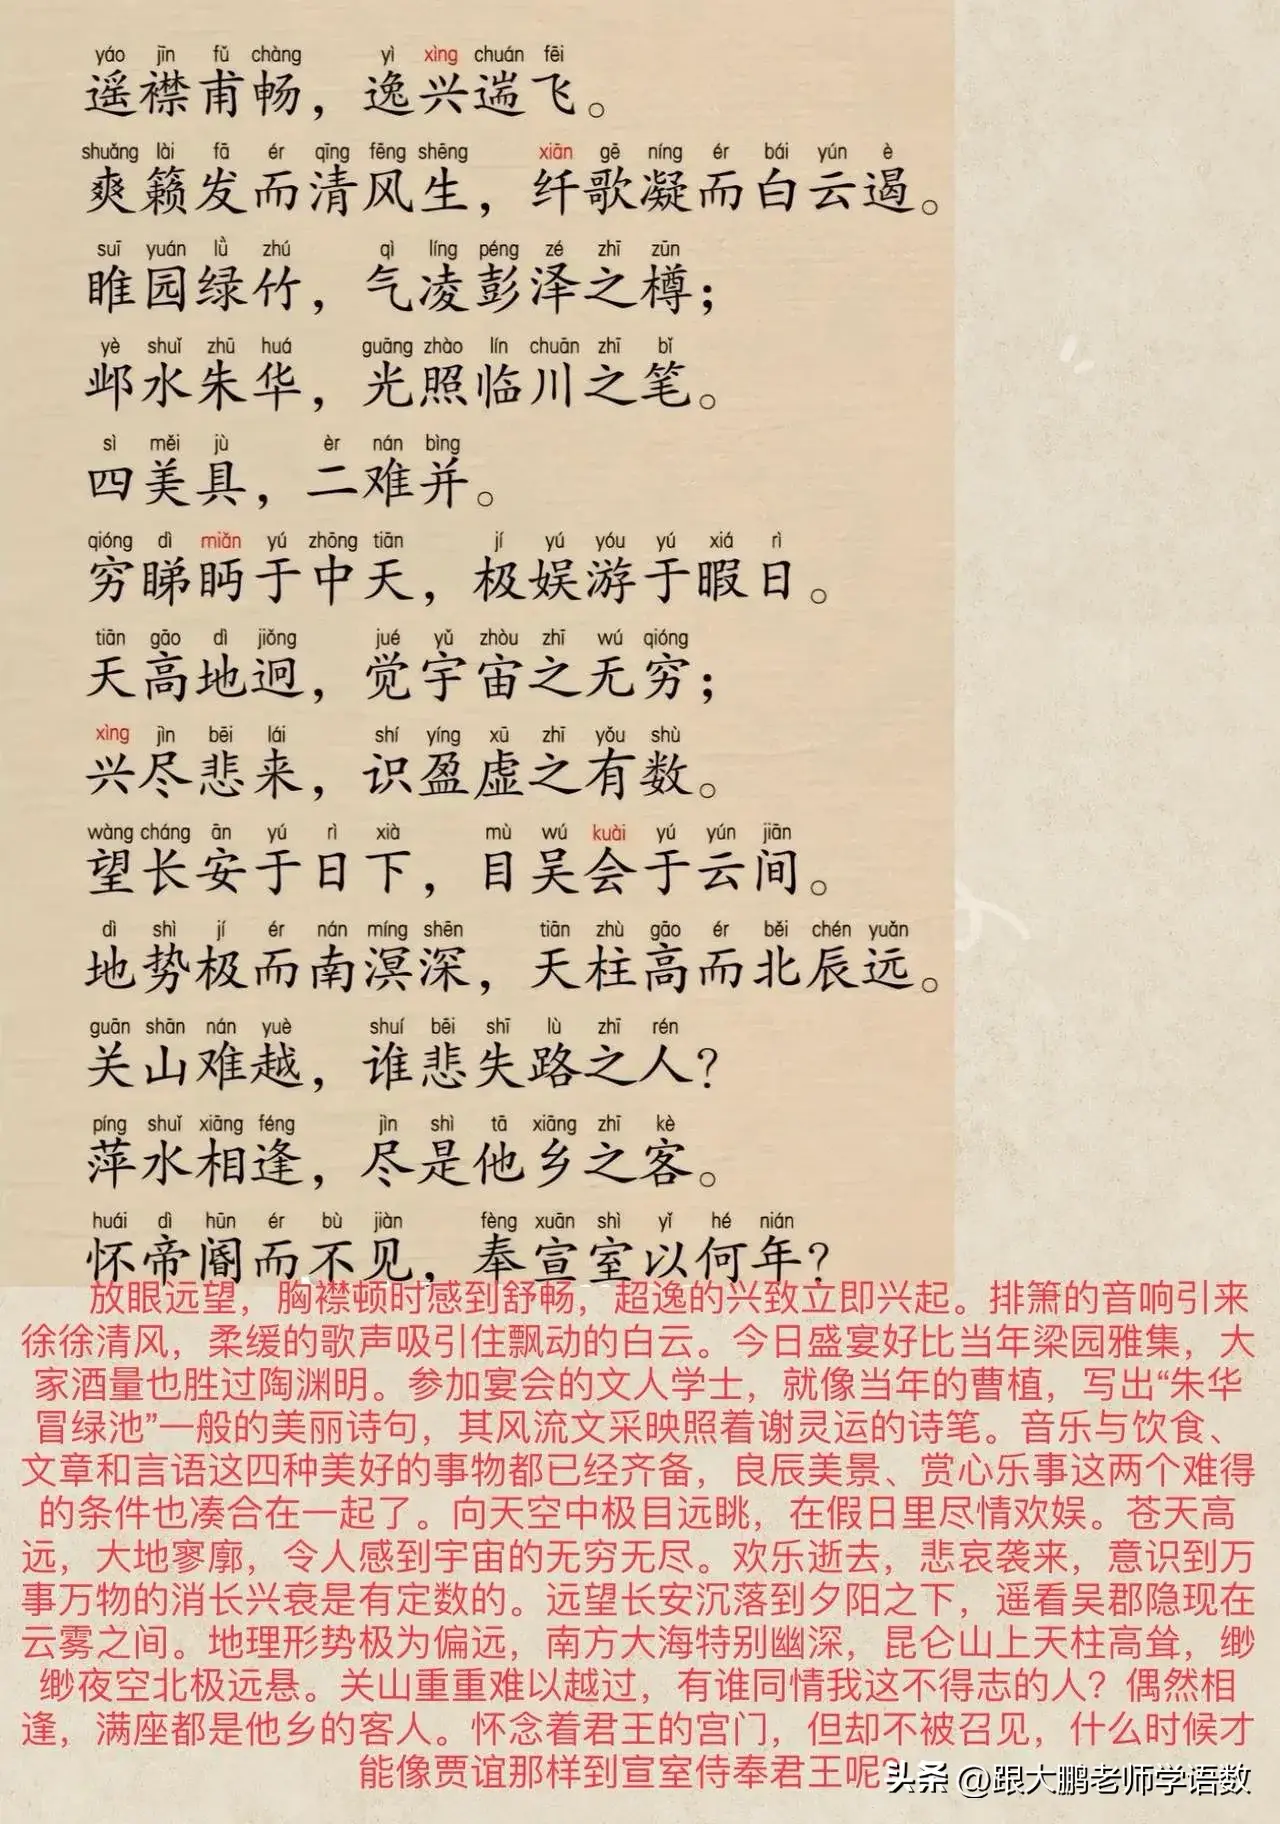 yáo jīn fǔ chàng yì xìng chuán fēi
遥襟甫畅，逸兴遄飞。
shuǎng lài fā ér qīng fēng shēng xiān gē níng ér bái yún è
爽籁发而清风生，纤歌凝而白云遏。
suī yuán lǜ zhú qì líng péng zé zhī zūn
睢园绿竹，气凌彭泽之樽；
yè shuǐ zhū huá guāng zhào lín chuān zhī bǐ
邺水朱华，光照临川之笔。
sì měi jù èr nán bìng
四美具，二难并。
qióng dì miǎn yú zhōng tiān jí yú yóu yú xiá rì
穷睇眄于中天，极娱游于暇日。
tiān gāo dì jiǒng jué yǔ zhòu zhī wú qióng
天高地迥，觉宇宙之无穷；
xìng jìn bēi lái shí yíng xū zhī yǒu shù
兴尽悲来，识盈虚之有数。
wàng cháng ān yú rì xià mù wú kuài yú yún jiān
望长安于日下，目吴会于云间。
dì shì jí ér nán míng shēn tiān zhù gāo ér běi chén yuǎn
地势极而南溟深，天柱高而北辰远。
guān shān nán yuè shuí bēi shī lù zhī rén
关山难越，谁悲失路之人？
píng shuǐ xiāng féng jìn shì tā xiāng zhī kè
萍水相逢，尽是他乡之客。
huái dì hūn ér bù jiàn fèng xuān shì yǐ hé nián
怀帝阍而不见，奉宣室以何年？
放眼远望，胸襟顿时感到舒畅，超逸的兴致立即兴起。排箫的音响引来
徐徐清风，柔缓的歌声吸引住飘动的白云。今日盛宴好比当年梁园雅集，大
家酒量也胜过陶渊明。参加宴会的文人学士，就像当年的曹植，写出“朱华
冒绿池”一般的美丽诗句，其风流文采映照着谢灵运的诗笔。音乐与饮食、
文章和言语这四种美好的事物都已经齐备，良辰美景、赏心乐事这两个难得
的条件也凑合在一起了。向天空中极目远眺，在假日里尽情欢娱。苍天高
远，大地寥廓，令人感到宇宙的无穷无尽。欢乐逝去，悲哀袭来，意识到万
事万物的消长兴衰是有定数的。远望长安沉落到夕阳之下，遥看吴郡隐现在
云雾之间。地理形势极为偏远，南方大海特别幽深，昆仑山上天柱高耸，缈
缈夜空北极远悬。关山重重难以越过，有谁同情我这不得志的人？偶然相
逢，满座都是他乡的客人。怀念着君王的宫门，但却不被召见，什么时候才
能像贾谊那样到宣室侍奉君王呢？
头条 @跟大鹏老师学语数